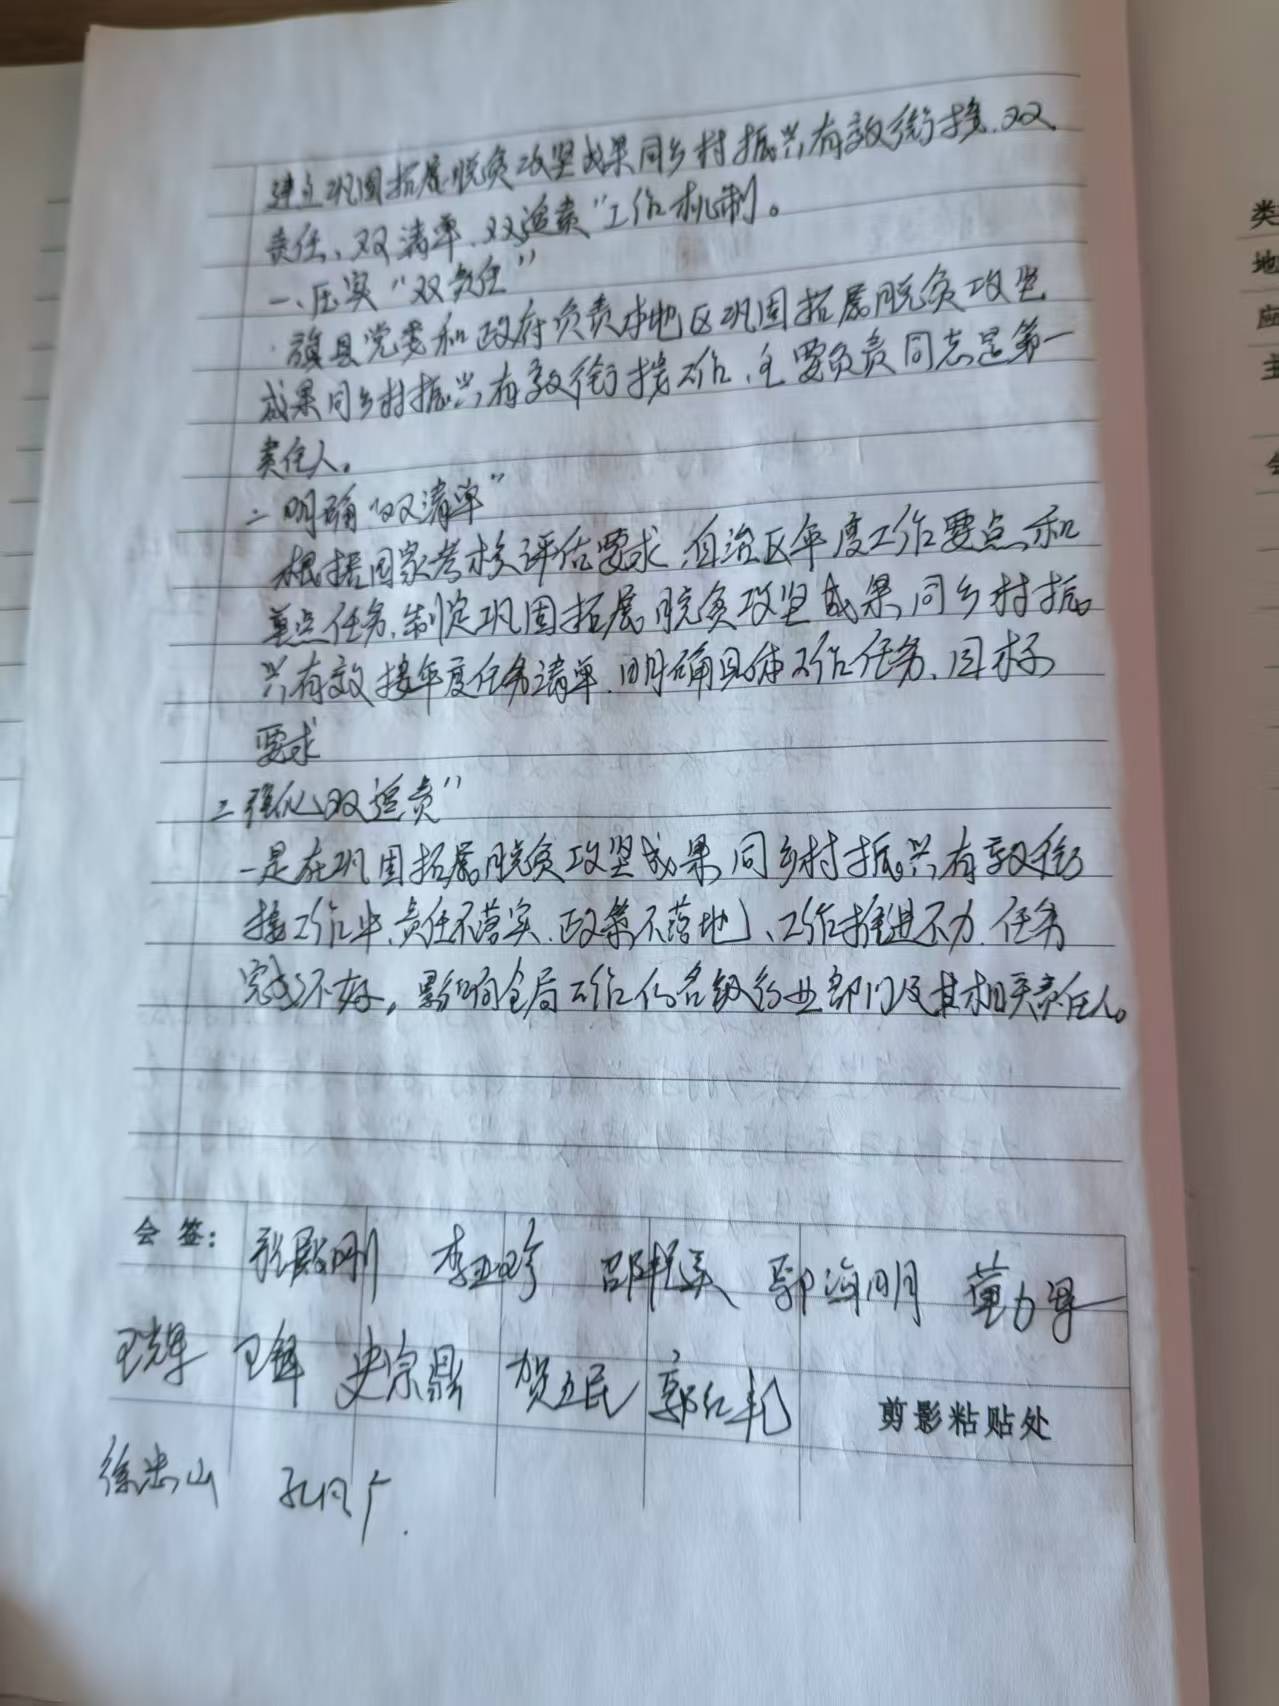 建立巩固拓展脱贫攻坚成果同乡村振兴有效衔接、双
责任、双清单、双追责"工作机制。
一、压实"双责任"
旗县党委和政府负责本地区巩固拓展脱贫攻坚
成果同乡村振兴有效衔接工作、主要负责同志是第一
责任人。
二明确"双清单"
根据国家考核评估要求、自治区年度工作要点、和
重点任务、制定巩固拓展脱贫攻坚成果同乡村振
兴有效接年度任务清单、明确具体工作任务、目标
要求
三强化双追责"
一是在巩固拓展脱贫攻坚成果同乡村振兴有效衔
接工作中、责任不落实、政策不落地、工作推进不力、任务
完成不好，影响全局工作的各级行业部门及其相关责任人。
会签：
张殿刚 李 郭海明 董力军
王 王锋 史宗鼎 贺五民 郭红
剪影粘贴处
徐忠山 孔凡
类
地
应
主
会